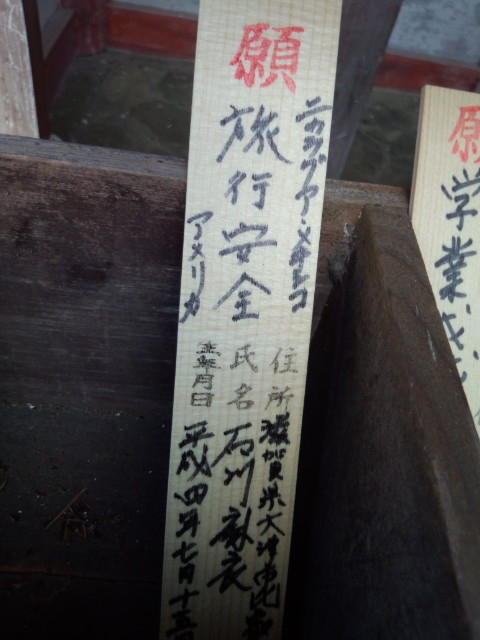 願
旅行安全
ニカラグア・メキシコ
アメリカ
住所 滋賀県大津市比
氏名 石川
生年月日 平成四年七月十五
願
学業